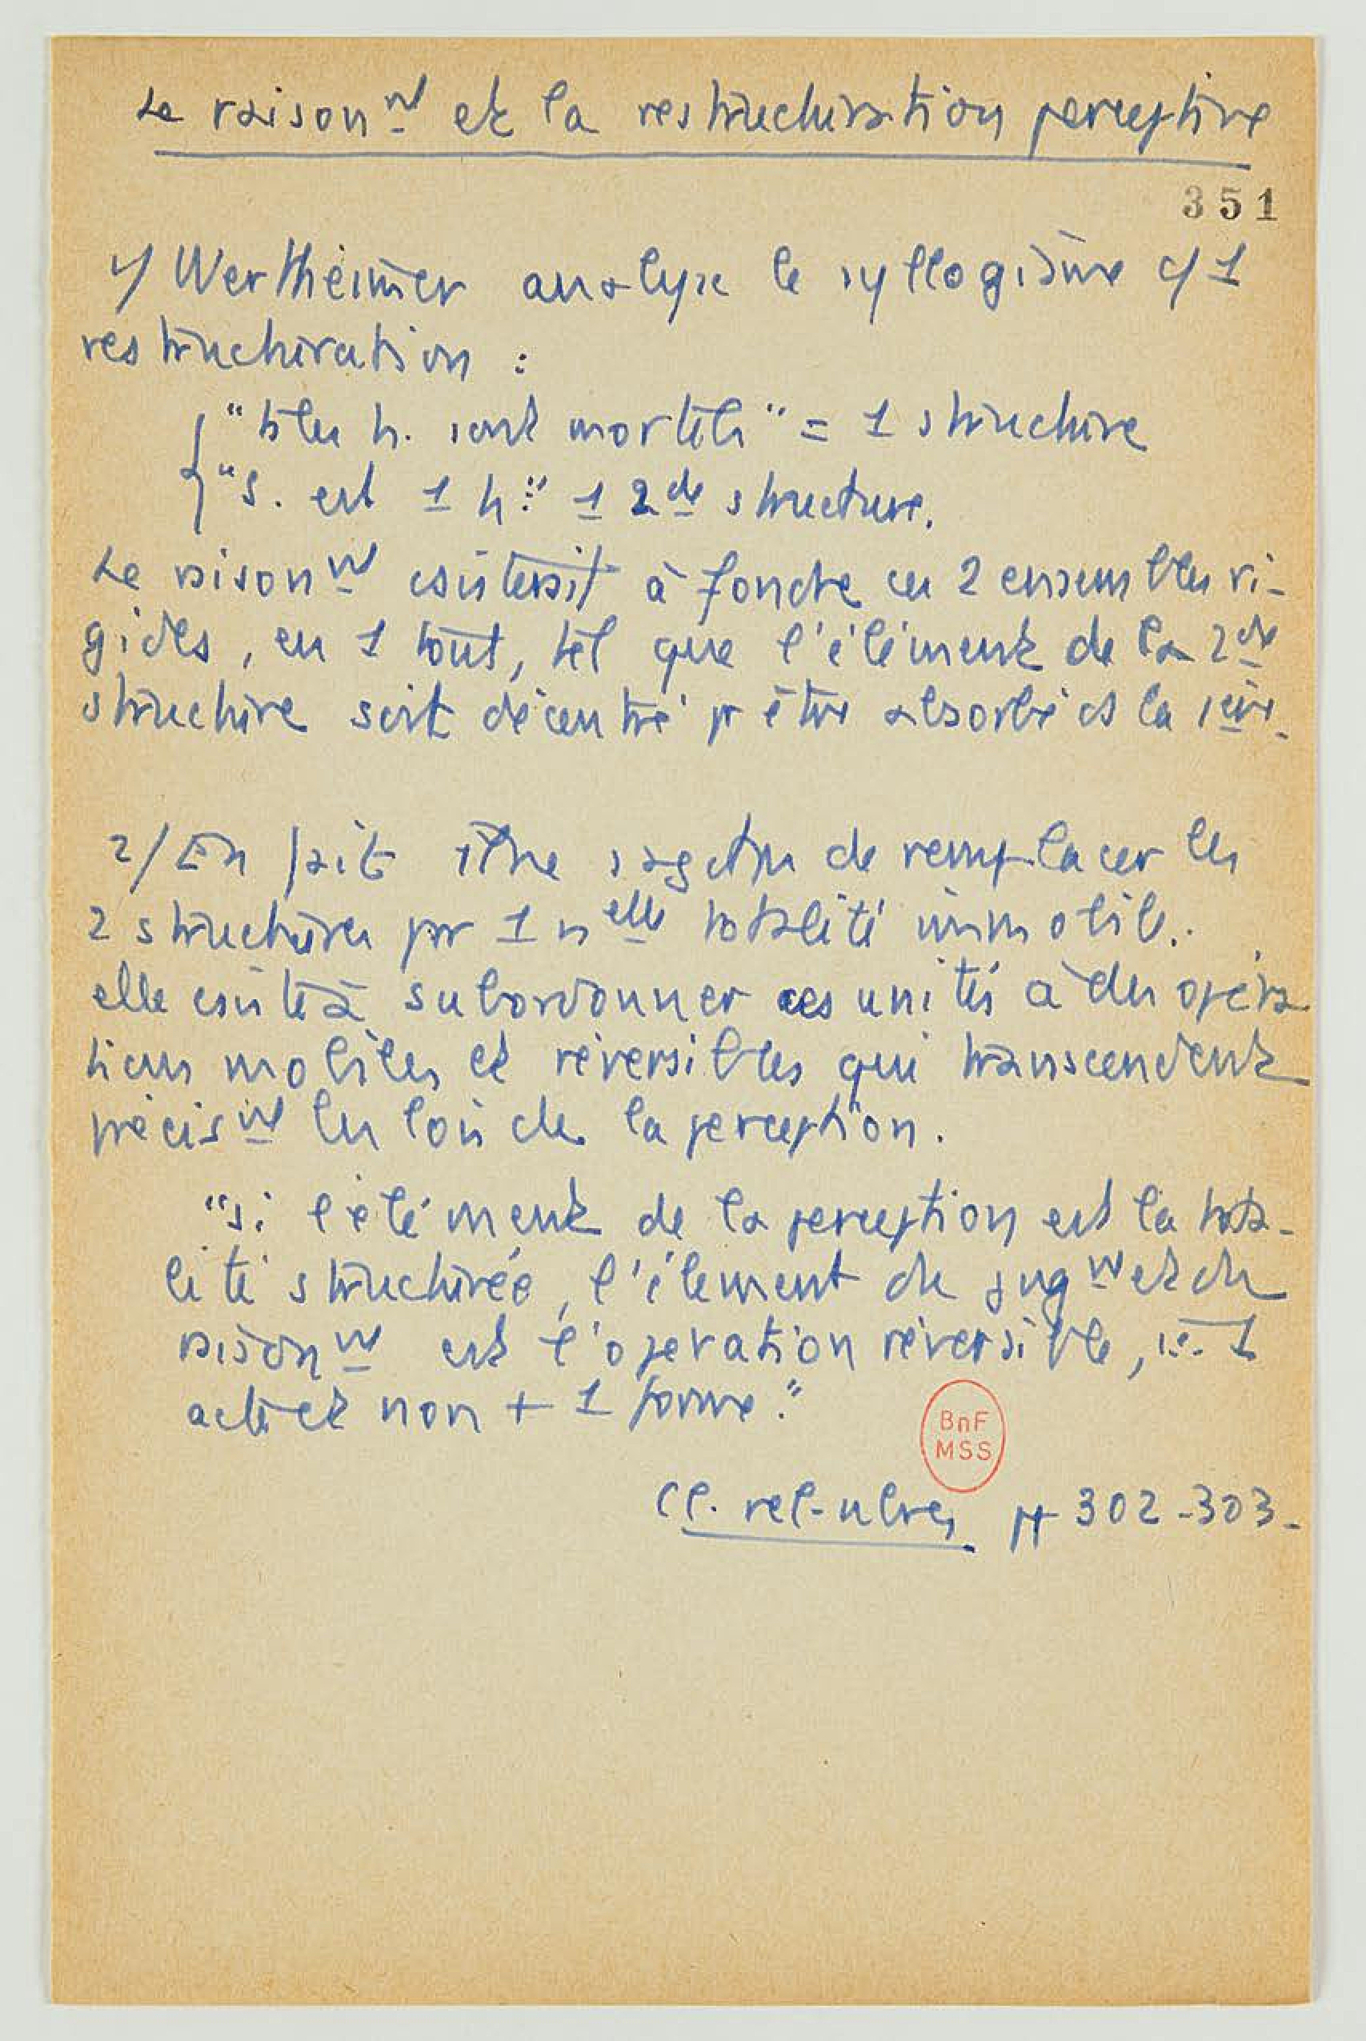 Le raisonnt et la restructuration perceptive
351
1/ Wertheimer analyse le syllogisme c/ 1
restructuration :
"ttes les h. sont mortels" = 1 structure
"S. est 1 h." 1 2de structure.
Le raisonnt à fondre ces 2 ensembles ri-
gides, en 1 tout, tel que l'élément de la 2de
structure soit décentré pr être absorbé ds la 1ère.
2/ En fait de remplacer les
2 structures par 1 nelle totalité immobile.
elle à subordonner ces unités à des opéra
tions mobiles et réversibles qui transcendent
précist les lois de la perception.
"si l'élément de la perception est la tota-
lité structurée, l'élément du jugt et du
raisonnt est l'opération réversible, i.e. 1
acte et non + 1 forme."
BnF
MSS
Cl. rel. nbres pp 302-303-